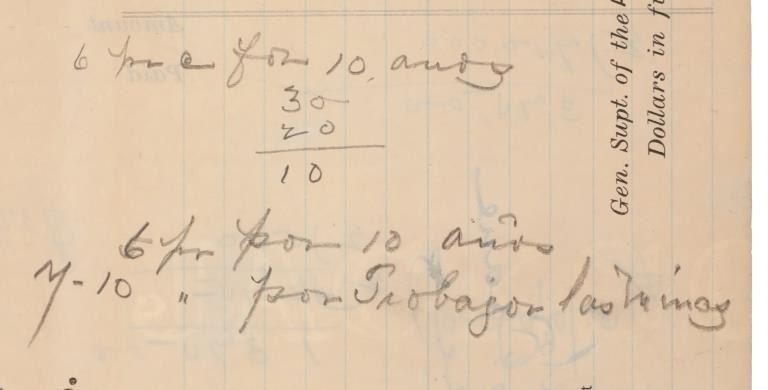 6 pr c for 10 años
30
20
10
6 pr por 10 años
Y-10 " por Trobagor las minas
Gen. Supt. of the
Dollars in